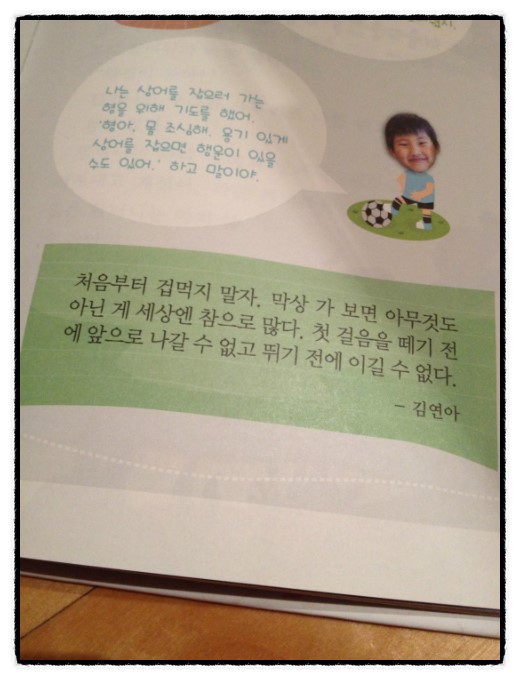 나는 상어를 잡으러 가는
형을 위해 기도를 했어.
'형아, 몸 조심해. 용기 있게
상어를 잡으면 행운이 있을
수도 있어.' 하고 말이야.
처음부터 겁먹지 말자. 막상 가 보면 아무것도
아닌 게 세상엔 참으로 많다. 첫 걸음을 떼기 전
에 앞으로 나갈 수 없고 뛰기 전에 이길 수 없다.
- 김연아